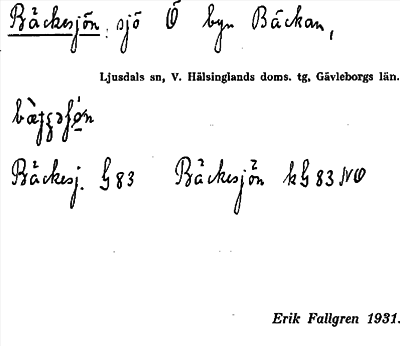 Bäckesjön: sjö Ö byn Bäckan,
Ljusdals sn, V. Hälsinglands doms. tg, Gävleborgs län.
Bäckesj. G 83 Bäckesjön kG 83 NO
Erik Fallgren 1931.